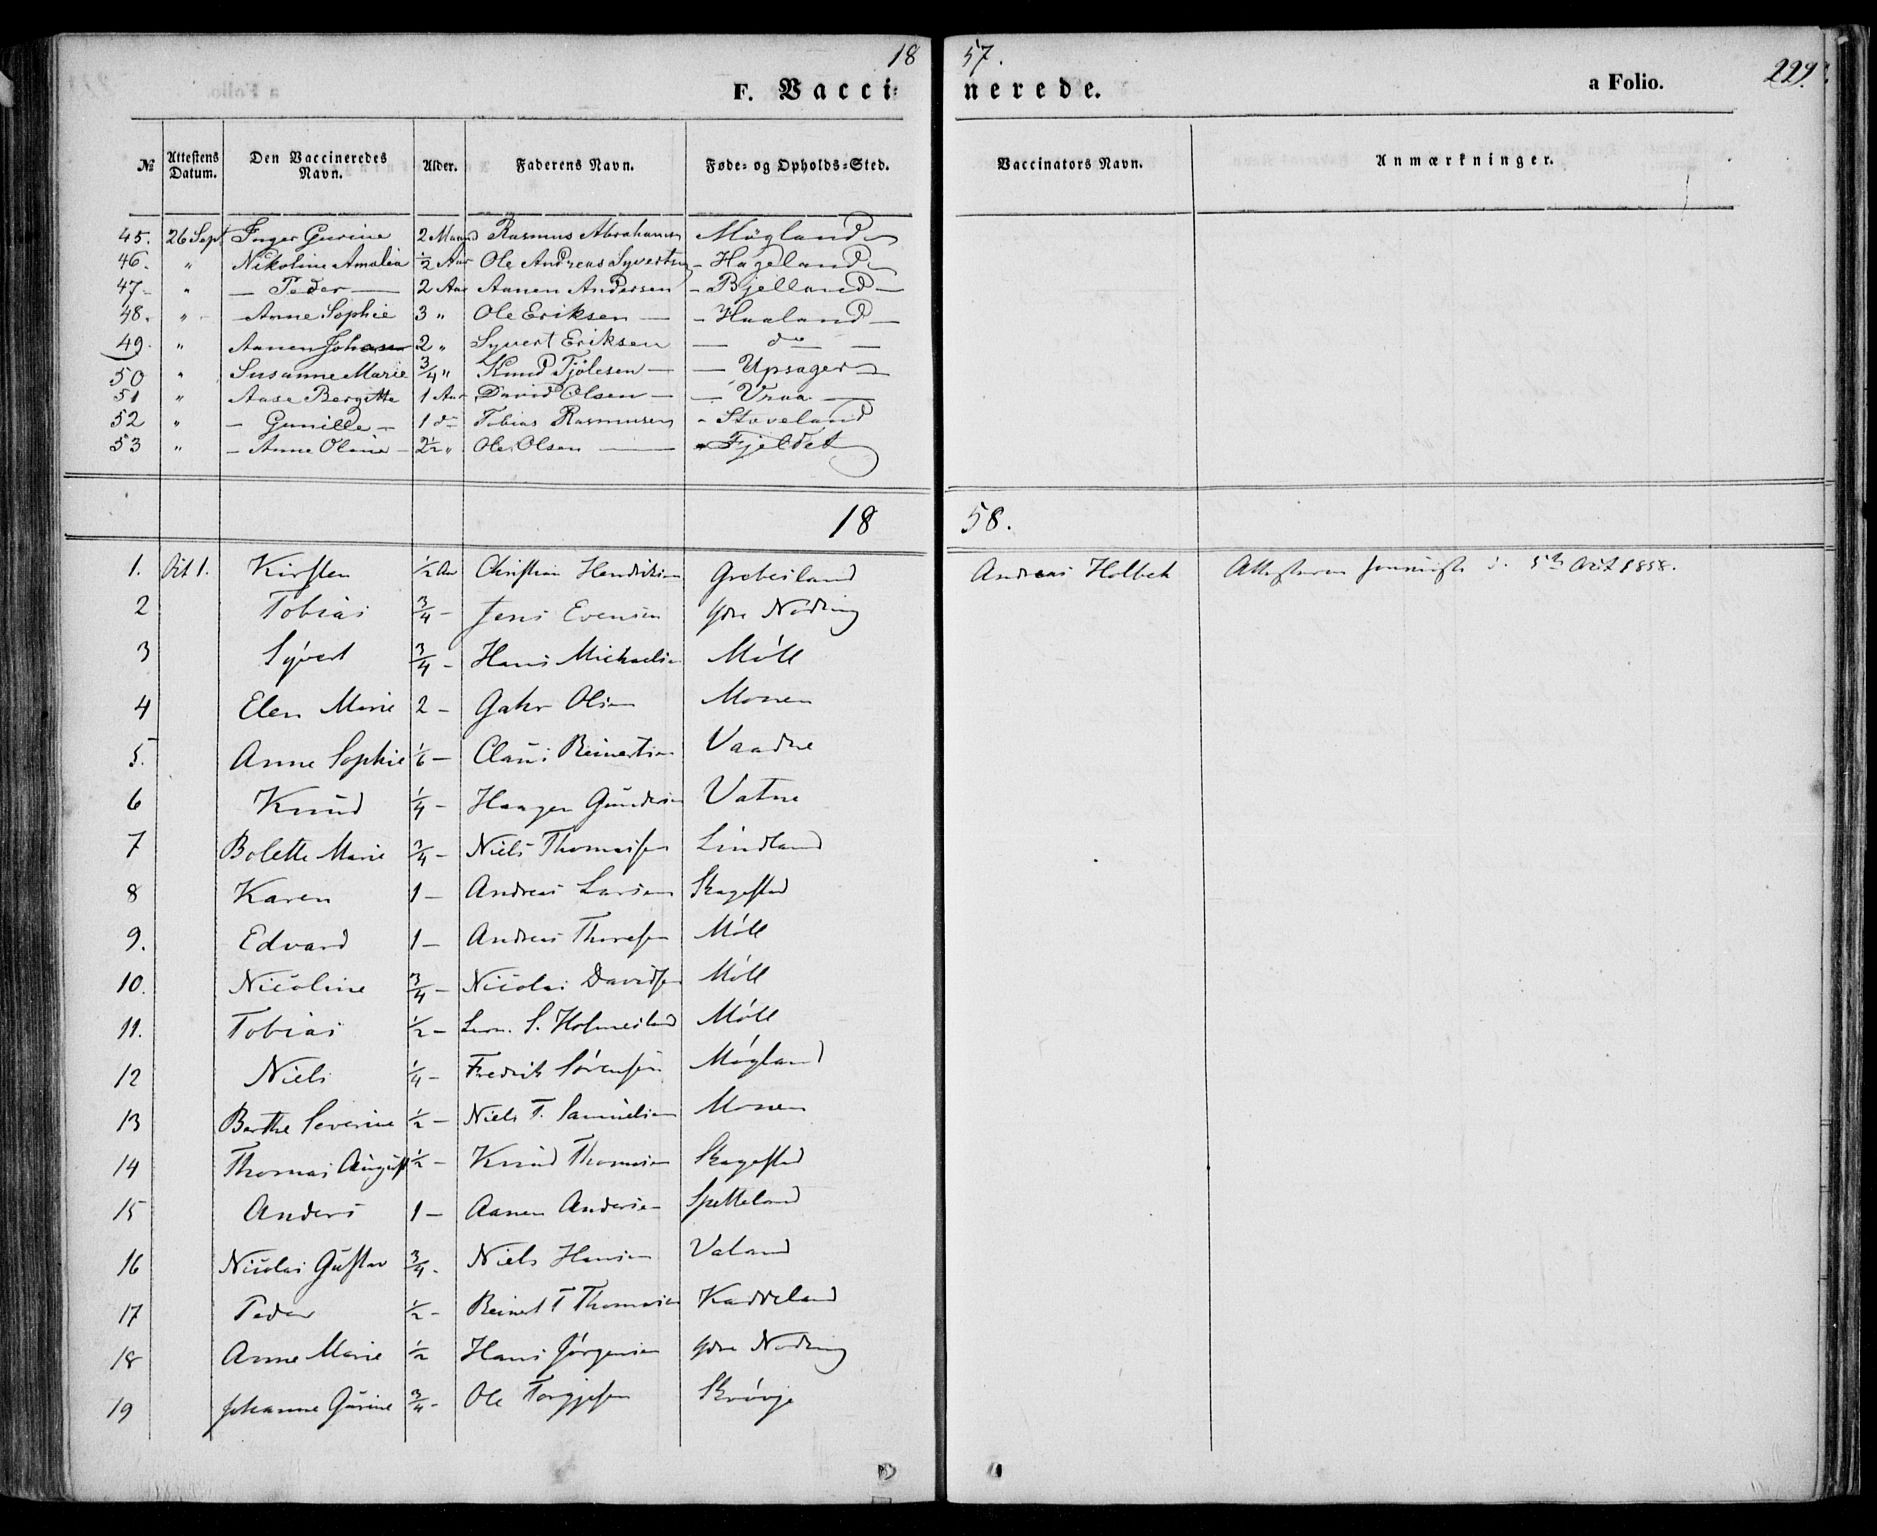 18 57.
F. Vaccinerede. a Folio. 229.
№ Attestens Datum. Den Vaccineredes Navn. Alder. Faderens Navn. Føde- og Opholds-Sted. Vaccinators Navn. Anmærkninger.
45. 26 Sept Inger Gurine 2 Maaned Rasmus Abrahamsen Møgland
46. " Nikoline Amalia ½ Aar Ole Andreas Syvertsen - Hageland
47 - " — Peder — 2 Aar Aanen Andersen - Bjelland —
48. " - Anne Sophie 3 " Ole Eriksen — - Haaland —
49. " Aanen Johan 2 " Syvert Eriksen — do —
50 " Susanne Marie ¾ " Knud Tjölesen — — Upsager
51 " Aase Bergitte 1 Aar David Olsen — — Vraa —
52 " - Gunille - 1 do Tobias Rasmusen - Støveland
53 " - Anne Oline - 2½ " Ole Olsen — - Fjeldet
18 58.
1. Oct 1. Kirsten ½ Aar Christian Hendriksen Grebesland Andreas Holbek 5te Oct 1858.
2 Tobias ¾ - Jens Evensen Ydre Noding
3 Syvert ¾ - Hans Michaelsen Möll
4 Elen Marie 2 - Gahr Olsen Monen
5. Anne Sophie 1/6 — Claus Reinertsen Vaadne
6 Knud ¼ - Haagen Gundersen Vatne
7 Bolette Marie ¾ - Niels Thomassen Lindland
8 Karen 1 — Andreas Larsen Skagestad
9. Edvard 1 — Andreas Thoresen Möll
10. Nicoline ¾ - Nicolai Davidsen Möll
11. Tobias ½ - S. Holmesland Möll
12 Niels ¼ - Fredrik Sörensen Mögland
13 Berthe Severine ½ - Niels T. Samuelsen Monen
14 Thomas August ½ - Knud Thomasen Skagestad
15 Anders 1 — Aanen Andersen Spetteland
16 Nicolai Gustav ¾ - Niels Hansen Valand
17 Peder ½ - Reinert T Thomasen Kadveland
18 Anne Marie ½ Hans Jörgensen Ydre Noding
19 Johanne Gurine ¾ - Ole Torgjesen Skrövje